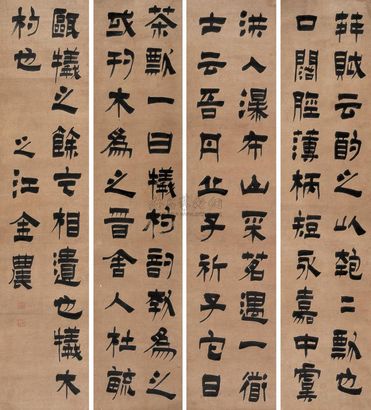 荈賦云酌之以匏二瓢也
口闊脛薄柄短永嘉中虞
洪入瀑布山采茗遇一衜
士云吾丹丘子祈子它日
茶瓢一曰犧杓剖瓠為之
或刊木為之晉舍人杜毓
甌犧之餘乞相遺也犧木
杓也 之江金農